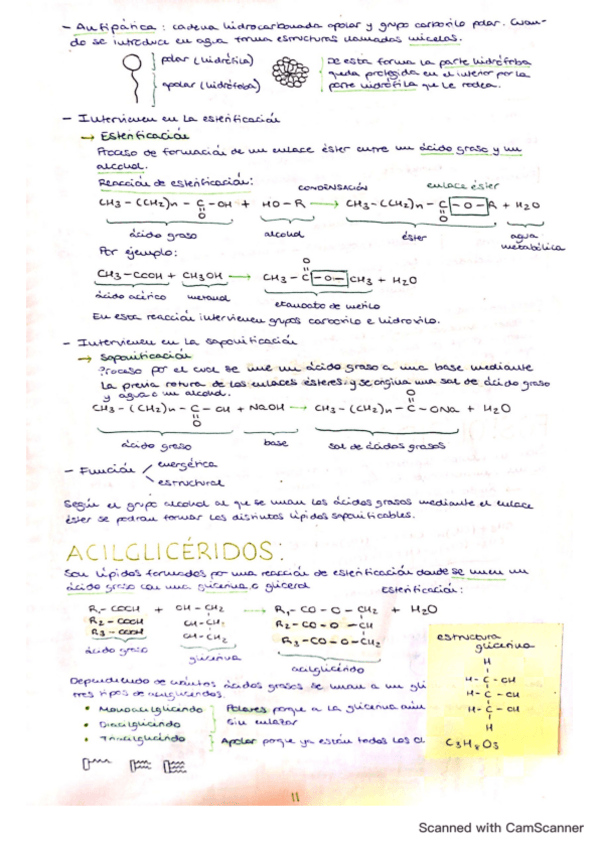 - Antipática : cadena hidrocarbonada apolar y grupo carboxilo polar. Cuan-
do se introduce en agua forma estructuras llamadas micelas.
polar (hidrófila)
apolar (hidrófoba)
De esta forma la parte hidrófoba
queda protegida en el interior por la
parte hidrófila que le rodea.
- Intervienen en la esterificación
→ Esterificación
Proceso de formación de un enlace éster entre un ácido graso y un
alcohol.
Reacción de esterificación:
CONDENSACIÓN
enlace éster
CH3 - (CH2)n - C - OH + HO - R → CH3 - (CH2)n - C - O - R + H2O
O O
ácido graso alcohol éster agua
metabólica
Por ejemplo:
O
CH3 - COOH + CH3OH → CH3 - C - O - CH3 + H2O
ácido acético metanol etanoato de metilo
En esta reacción intervienen grupos carboxilo e hidroxilo.
- Intervienen en la saponificación
→ Saponificación
Proceso por el cual se une un ácido graso a una base mediante
la previa rotura de los enlaces ésteres y se origina una sal de ácido graso
y agua o un alcohol.
O
CH3 - (CH2)n - C - OH + NaOH → CH3 - (CH2)n - C - ONa + H2O
O
ácido graso base sal de ácidos grasos
- Función energética
estructural
Según el grupo alcohol al que se unan los ácidos grasos mediante el enlace
éster se podrán formar los distintos lípidos saponificables.
ACILGLICÉRIDOS:
Son lípidos formados por una reacción de esterificación donde se unen un
ácido graso con una glicerina o glicerol
esterificación:
R1 - COOH + OH - CH2 → R1 - CO - O - CH2 + H2O
R2 - COOH OH - CH R2 - CO - O - CH
R3 - COOH OH - CH2 R3 - CO - O - CH2
ácido graso glicerina acilglicérido
estructura
glicerina
H
H - C - OH
H - C - OH
H - C - OH
H
C3H8O3
Dependiendo de cuántos ácidos grasos se unan a un gli
tres tipos de acilglicéridos.
• Monoacilglicérido
• Diacilglicérido
Polares porque a la glicerina aún
sin enlazar
• Triacilglicérido
Apolar porque ya están todos los
11
Scanned with CamScanner